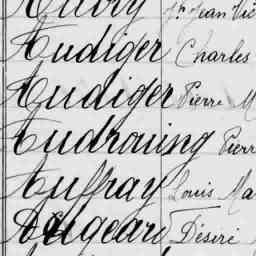 Aubry Jn Jean Vic
Audiger Charles
Audiger Pierre M
Audrouing Pierr
Auffray Louis Ma
Augeard Désiré